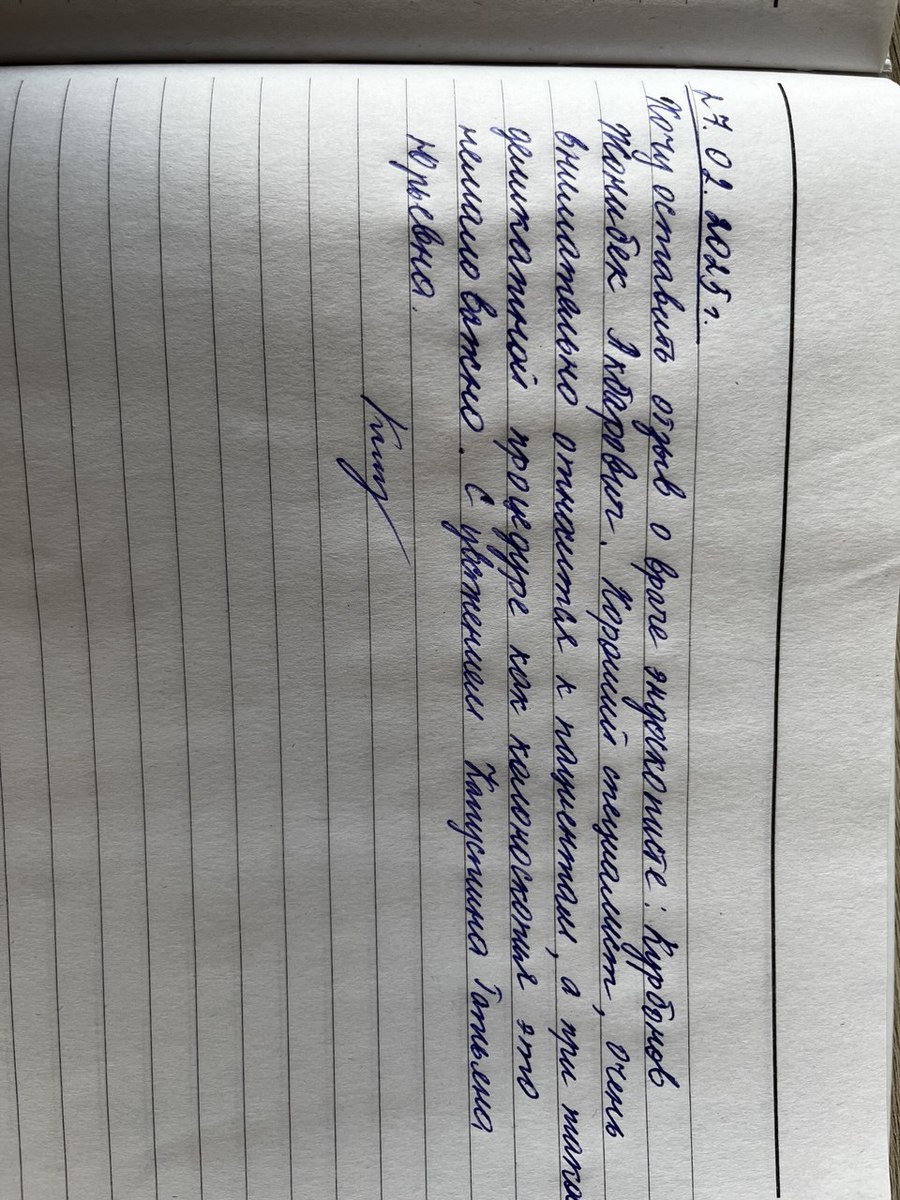 27.02.2025 г.
Хочу оставить отзыв о враче эндоскописте: Курбонов
Жонибек Акборович. Хороший специалист, очень
внимательно относится к пациентам, а при тако
деликатной процедуре как колоноскопия это
немало важно. С уважением Капустина Татьяна
Юрьевна.